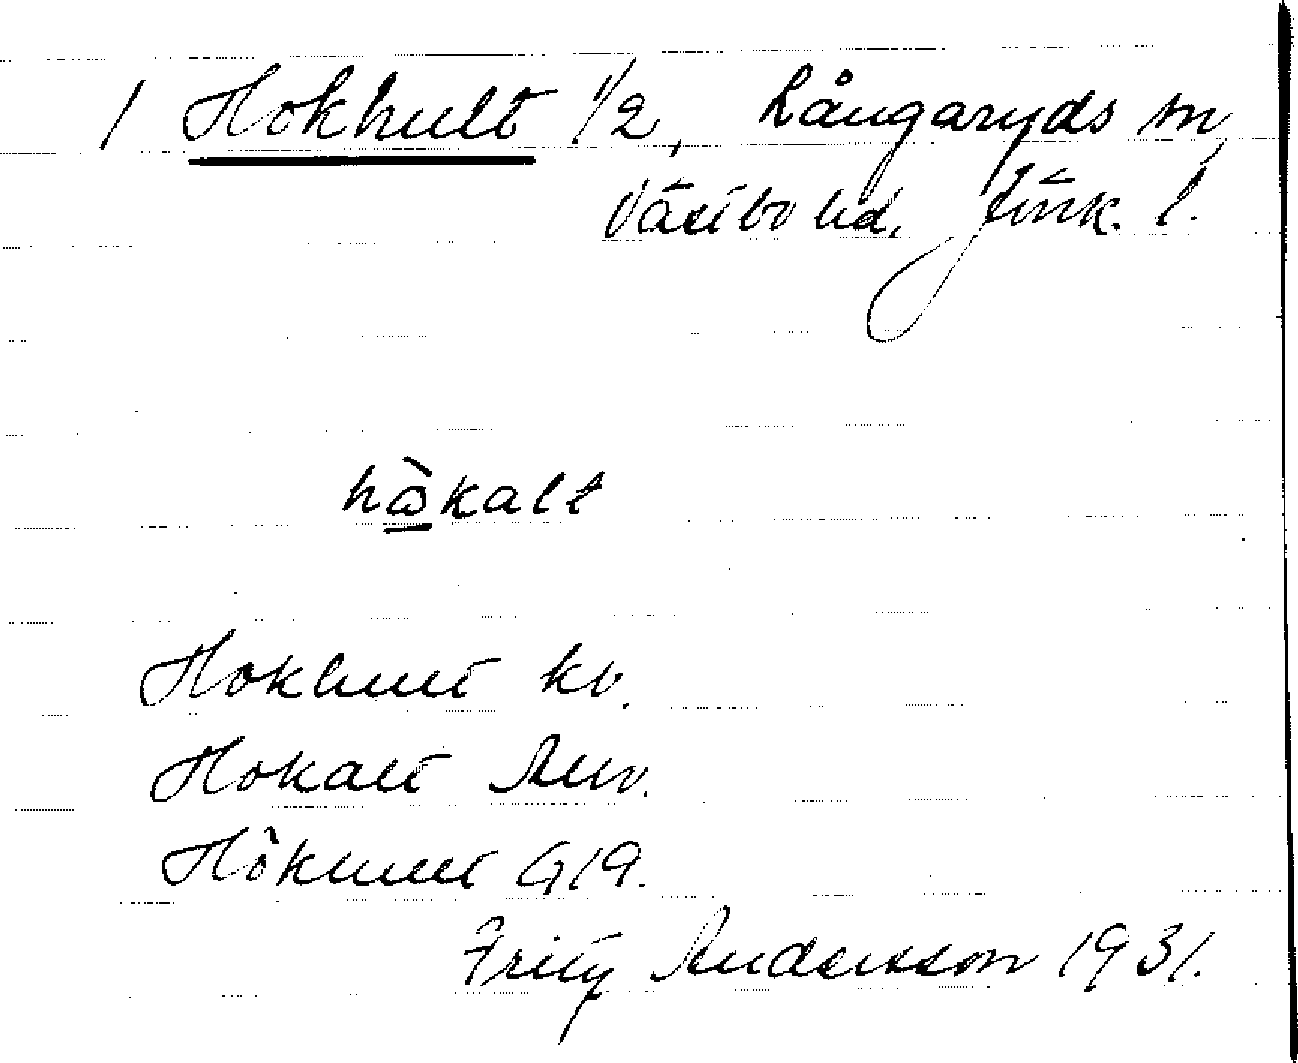 1 Hokhult 1/2, Långaryds sn,
Västbo hd, Jönk. l.
hò̲kalt
Hokhult kv.
Hokalt Allv.
Hökhult G19.
Fritz Andersson 1931.